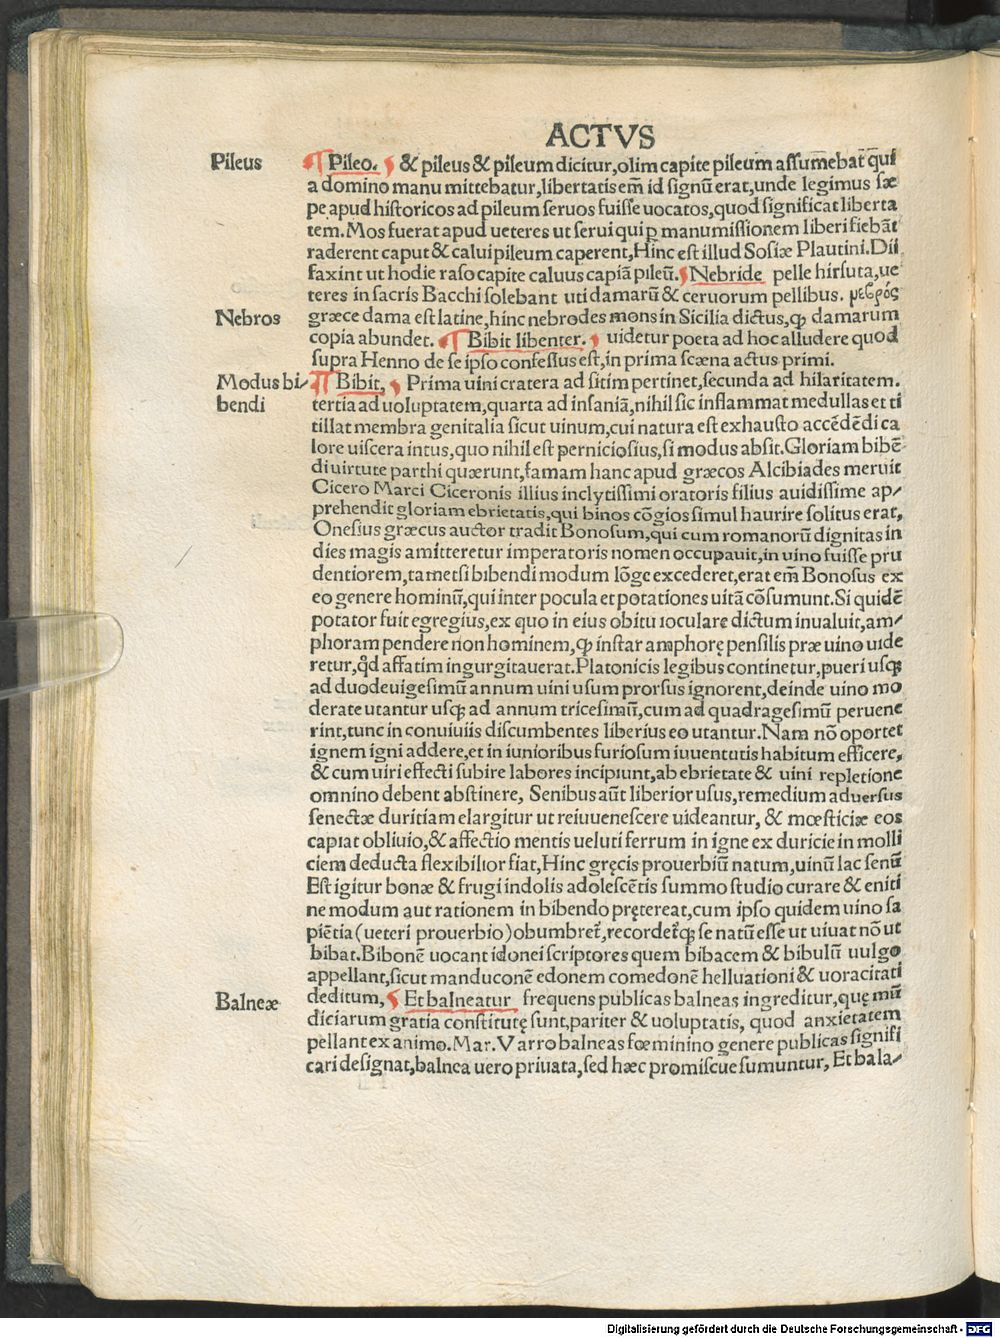 ACTVS
Pileus
¶ Pileo. & pileus & pileum dicitur,olim capite pileum assumebāt q̄ui
a domino manu mittebatur,libertatis em̄ id signū erat,unde legimus sæ
pe apud historicos ad pileum seruos fuisse uocatos,quod significat liberta
tem.Mos fuerat apud ueteres ut serui qui ꝑ manumissionem liberi fiebāt
raderent caput & calui pileum caperent,Hinc est illud Sosiæ Plautini.Dii
faxint ut hodie raso capite caluus capiā pileū. Nebride pelle hirsuta,ue
teres in sacris Bacchi solebant uti damarū & ceruorum pellibus. μεβρός
Nebros
græce dama est latine,hinc nebrodes mons in Sicilia dictus,ꝙ damarum
copia abundet. ¶ Bibit libenter. uidetur poeta ad hoc alludere quod
supra Henno de se ipso confessus est,in prima scæna actus primi.
Modus bi/
bendi
¶ Bibit, Prima uini cratera ad sitim pertinet,secunda ad hilaritatem.
tertia ad uoluptatem,quarta ad insaniā,nihil sic inflammat medullas et ti
tillat membra genitalia sicut uinum,cui natura est exhausto accēdēdi ca
lore uiscera intus,quo nihil est perniciosius,si modus absit.Gloriam bibē
di uirtute parthi quærunt,famam hanc apud græcos Alcibiades meruit
Cicero Marci Ciceronis illius inclytissimi oratoris filius auidissime ap/
prehendit gloriam ebrietatis,qui binos cōgios simul haurire solitus erat,
Onesius græcus auctor tradit Bonosum,qui cum romanorū dignitas in
dies magis amitteretur imperatoris nomen occupauit,in uino fuisse pru
dentiorem,tametsi bibendi modum lōge excederet,erat em̄ Bonosus ex
eo genere hominū,qui inter pocula et potationes uitā cōsumunt.Si quidē
potator fuit egregius,ex quo in eius obitu ioculare dictum inualuit,am/
phoram pendere non hominem,ꝙ instar amphorę pensilis præ uino uide
retur,q̄d affatim ingurgitauerat.Platonicis legibus continetur,pueri usqꝫ
ad duodeuigesimū annum uini usum prorsus ignorent,deinde uino mo
derate utantur usqꝫ ad annum tricesimū,cum ad quadragesimū peruene
rint,tunc in conuiuiis discumbentes liberius eo utantur.Nam nō oportet
ignem igni addere,et in iunioribus furiosum iuuentutis habitum efficere,
& cum uiri effecti subire labores incipiunt,ab ebrietate & uini repletione
omnino debent abstinere, Senibus aūt liberior usus,remedium aduersus
senectæ duritiam elargitur ut reiuuenescere uideantur, & mœsticiæ eos
capiat obliuio,& affectio mentis ueluti ferrum in igne ex duricie in molli
ciem deducta flexibilior fiat,Hinc gręcis prouerbiū natum,uinū lac senū
Est igitur bonæ & frugi indolis adolescētis summo studio curare & eniti
ne modum aut rationem in bibendo prętereat,cum ipso quidem uino sa
piētia(ueteri prouerbio)obumbret̄,recordet̄qꝫ se natū esse ut uiuat nō ut
bibat.Bibonē uocant idonei scriptores quem bibacem & bibulū uulgo
appellant,sicut manduconē edonem comedonē helluationi & uoracitati
Balneæ
deditum, Et balneatur frequens publicas balneas ingreditur,quę mū
diciarum gratia constitutę sunt,pariter & uoluptatis, quod anxietatem
pellant ex animo.Mar.Varro balneas fœminino genere publicas signifi
cari designat,balnea uero priuata,sed hæc promiscue sumuntur, Et bala/
Digitalisierung gefördert durch die Deutsche Forschungsgemeinschaft - DFG